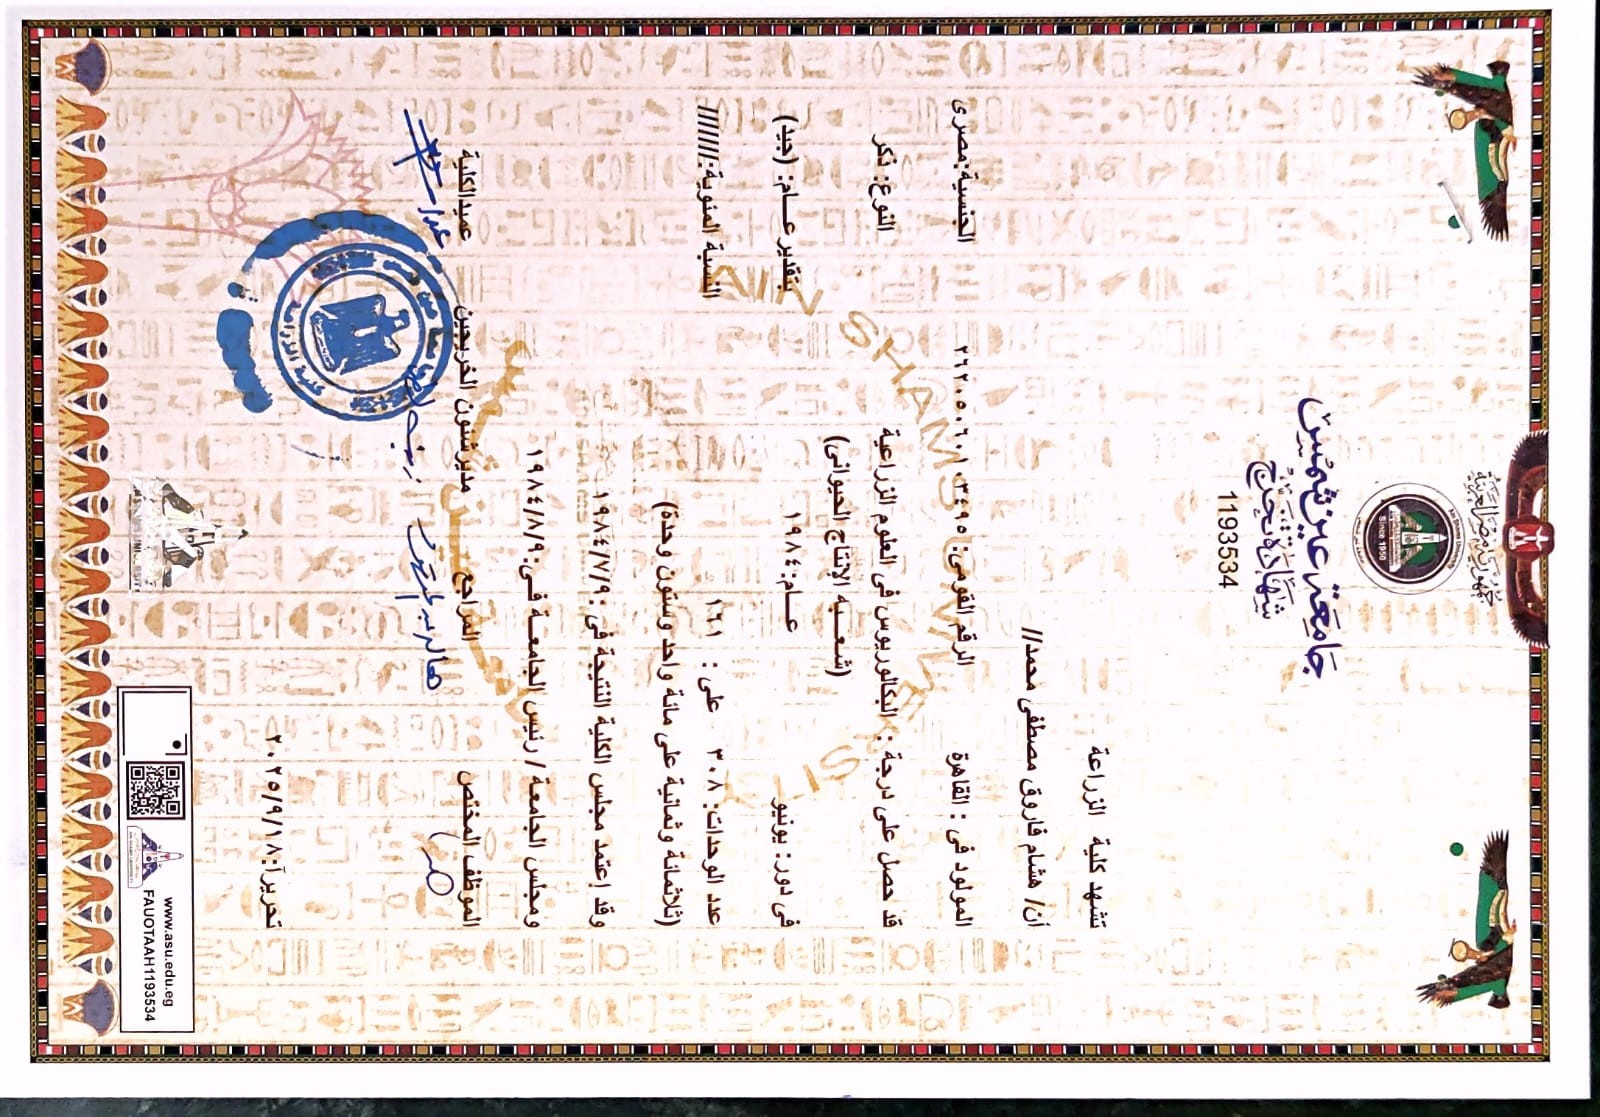 جمهورية مصر العربية
Ain Shams University
Since 1950
جامعة عين شمس
شهادة تخرج
1193534
تشهد كلية الزراعة
أن/ هشام فاروق مصطفى محمد//
المولود فى : القاهرة الرقم القومى: ٢٦٢٠٥٠٦٠١٠٣٤٩٥ الجنسية:مصرى
قد حصل على درجة : البكالوريوس فى العلوم الزراعية النوع: ذكر
(شعبة الإنتاج الحيوانى)
فى دور: يونيو عـــام:١٩٨٤ بتقدير عـــام: (جيد)
عدد الوحدات: ٣٠٨ على : ١٦١ النسبة المئوية://////
(ثلاثمائة وثمانية على مائة واحد وستون وحدة)
وقد إعتمد مجلس الكلية النتيجة فى :١٩٨٤/٧/٩
ومجلس الجامعة / رئيس الجامعـــة فـــى:١٩٨٤/٨/٩
الموظف المختص المراجع مدير شئون الخريجين عميد الكلية
تحريرآ:٢٠٢٥/٩/١٨
كلية الزراعة
AIN SHAMS
www.asu.edu.eg
FAUOTAAH1193534